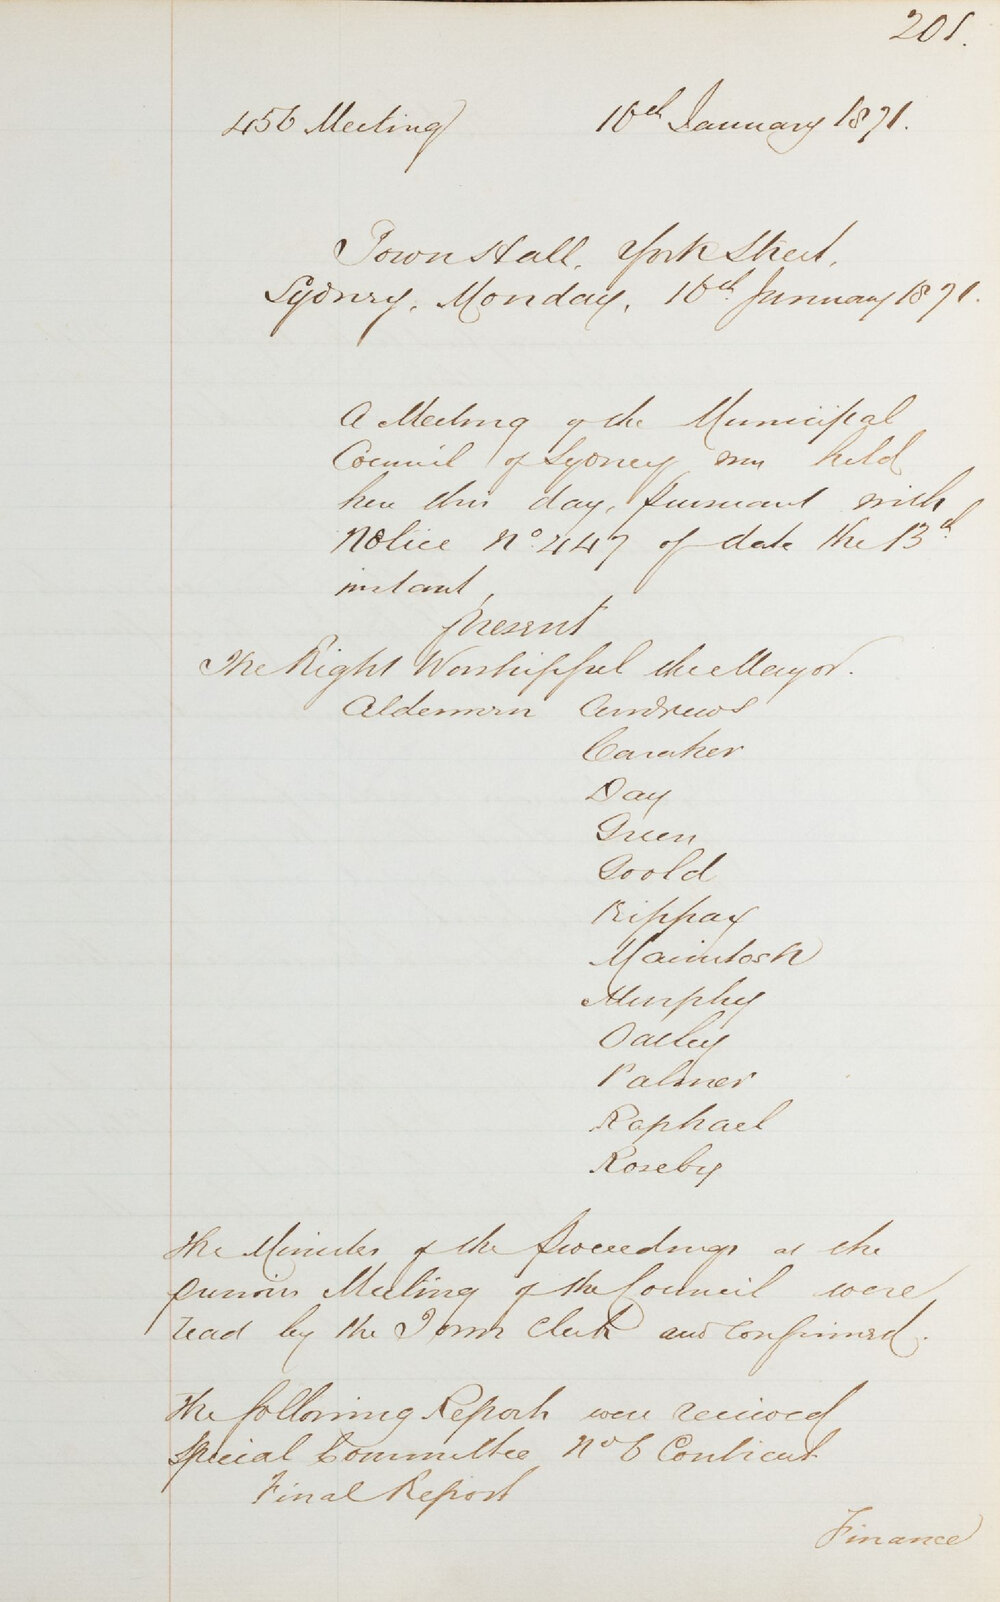 201.
456 Meeting 16th January 1871.
Town Hall, York Street,
Sydney, Monday, 16th January 1871.
A Meeting of the Municipal
Council of Sydney was held
here this day, pursuant with
Notice No. 447 of date the 13th
instant,
present
The Right Worshipful the Mayor.
Aldermen Andrews
Caraher
Day
Green
Goold
Kippax
Macintosh
Murphy
Oatley
Palmer
Raphael
Roseby
The Minutes of the Proceedings at the
previous Meeting of the Council were
read by the Town Clerk and confirmed.
The following Reports were received
Special Committee No 6 Contract
Final Report
Finance